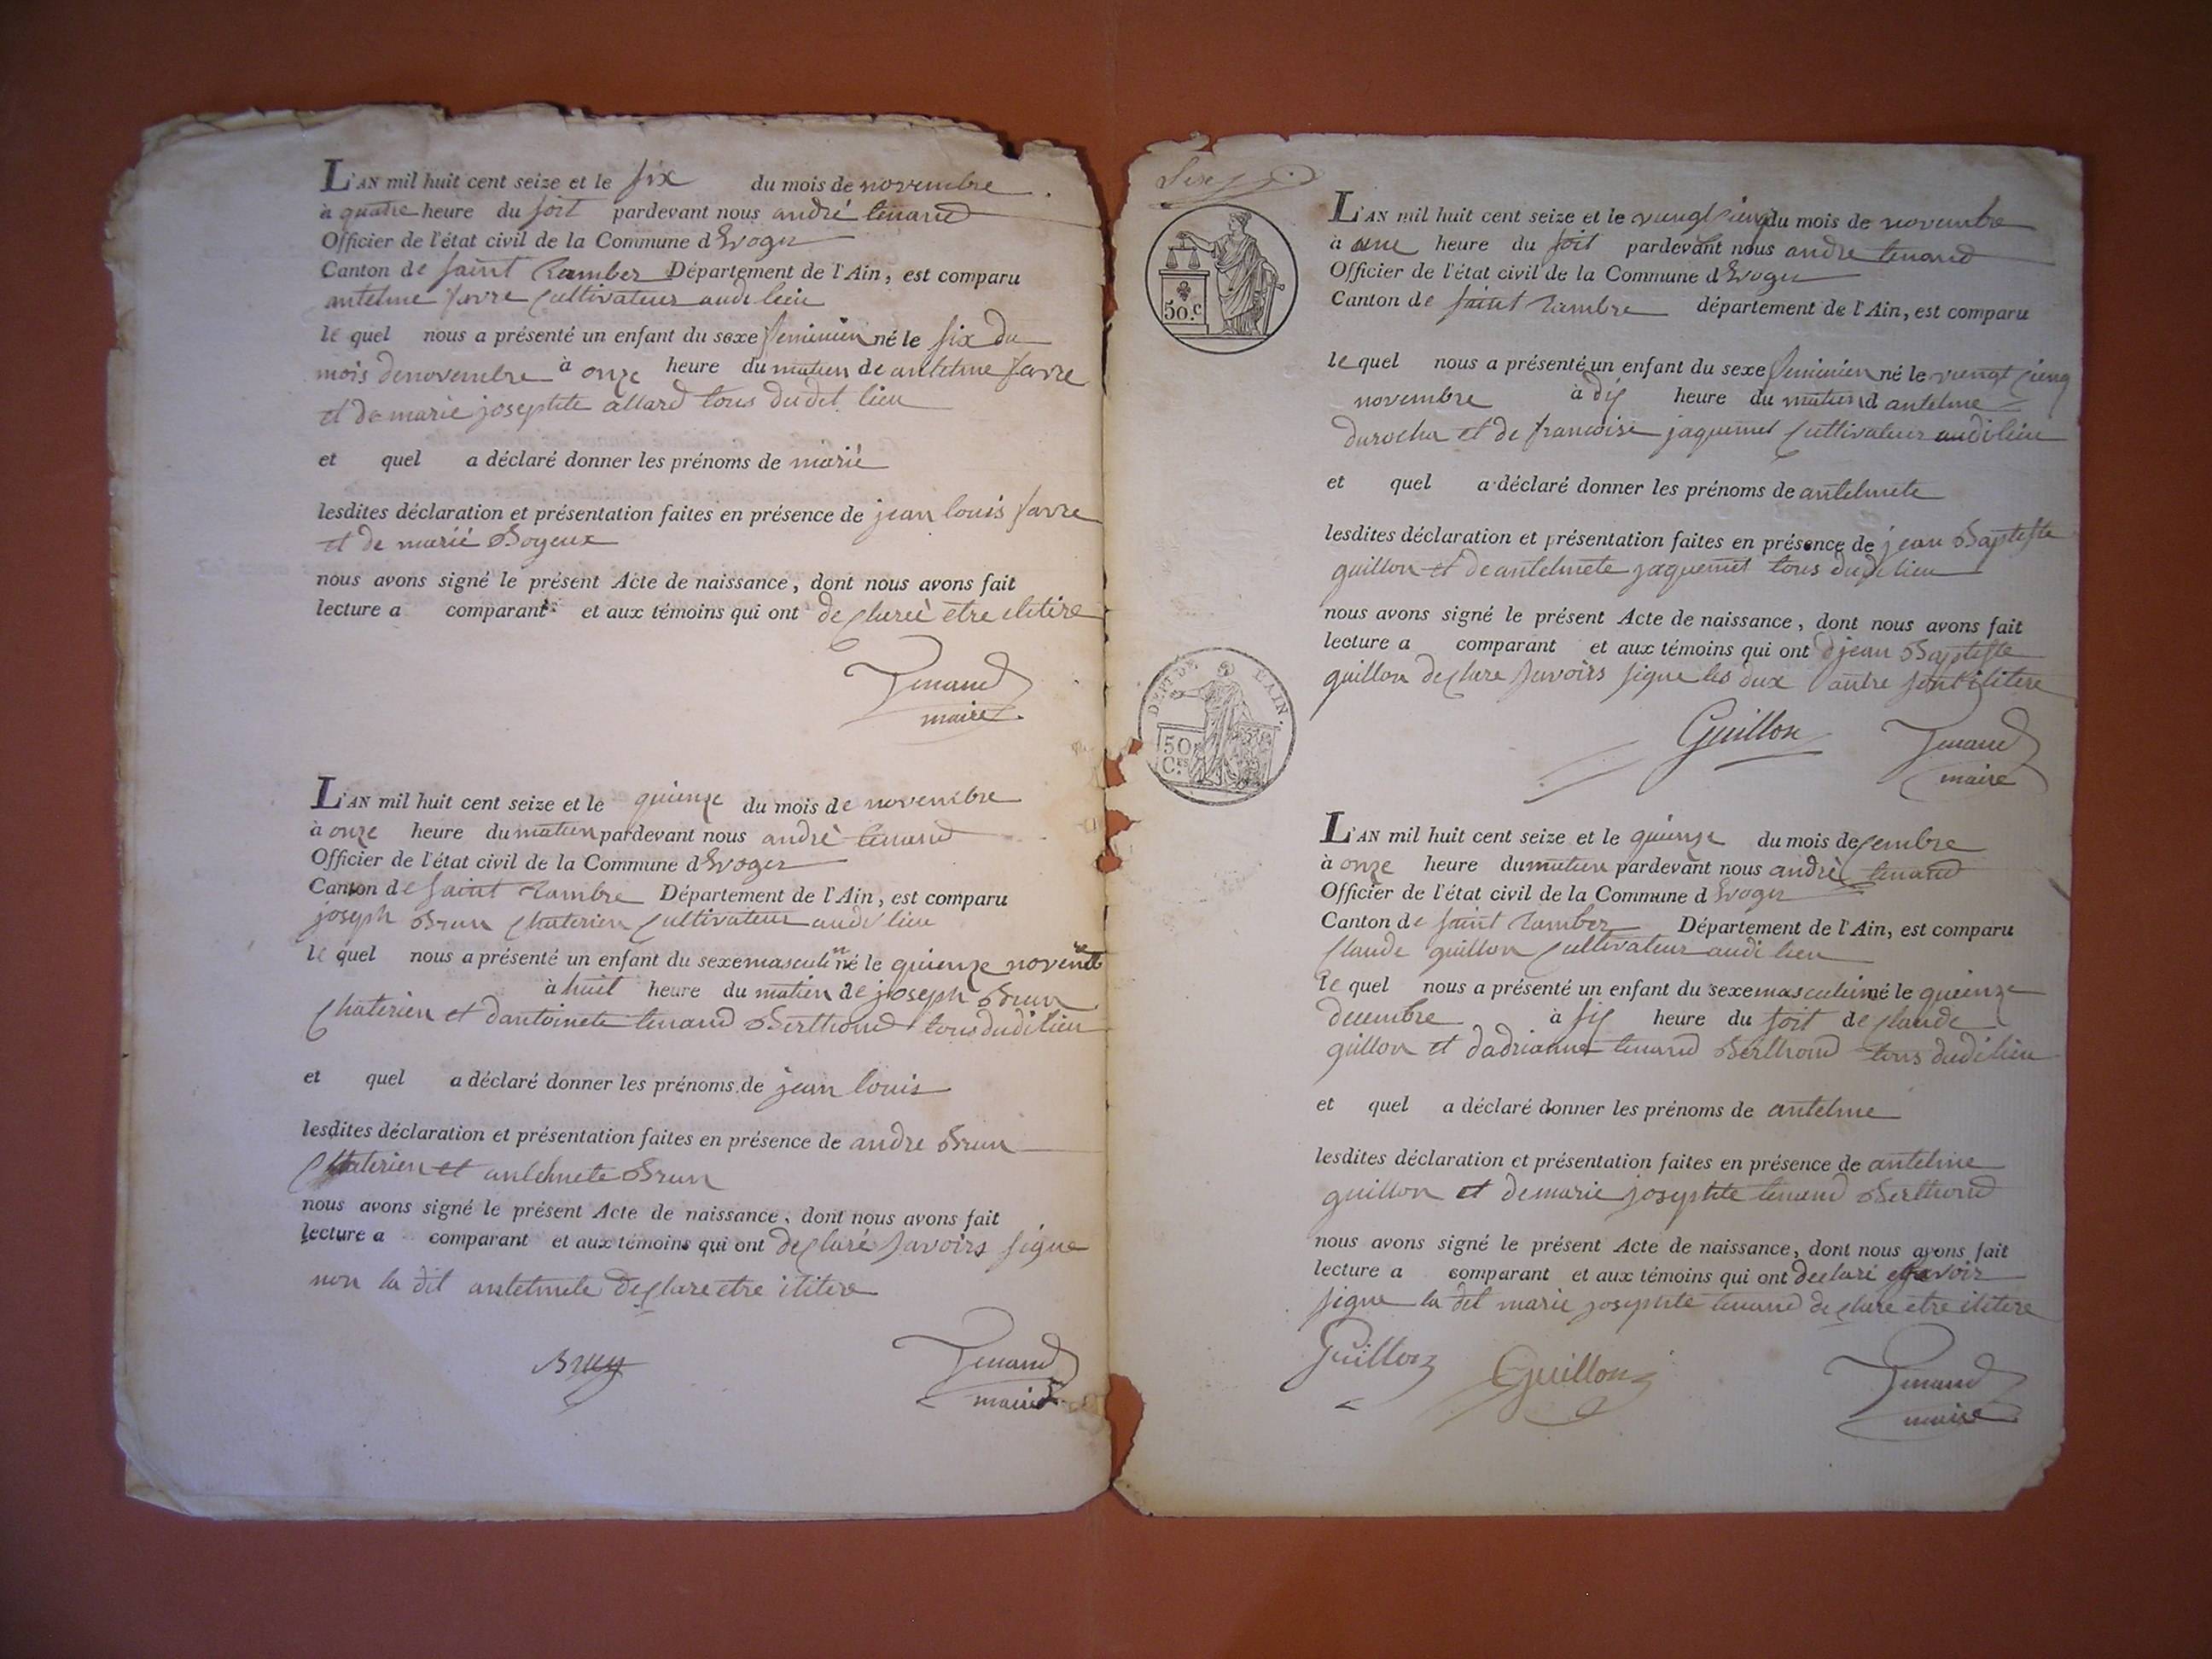 L'AN mil huit cent seize et le six du mois de novembre
à quatre heure du soit pardevant nous andré tenand
Officier de l'état civil de la Commune d Evoges
Canton de saint Ramber Département de l'Ain, est comparu
antelme favre cultivateur audi lieu
le quel nous a présenté un enfant du sexe feminien né le six du
mois de novembre à onze heure du matien de antelme favre
et de marie josephte allard tous dudit lieu
et quel a déclaré donner les prénoms de marie
lesdites déclaration et présentation faites en présence de jean louis favre
et de marié Boyeux
nous avons signé le présent Acte de naissance, dont nous avons fait
lecture a comparant et aux témoins qui ont declareé etre ilitire
Tenand
maire
L'AN mil huit cent seize et le quienze du mois de novembre
à onze heure du matien pardevant nous andré tenand
Officier de l'état civil de la Commune d Evoges
Canton de saint Rambre Département de l'Ain, est comparu
joseph Brun Chaterien cultivateur audi lieu
le quel nous a présenté un enfant du sexe masculin né le quienze novembre
à huit heure du matien de joseph Brun
Chaterien et dantoinete tenand Berthond tous dudi lieu
et quel a déclaré donner les prénoms de jean louis
lesdites déclaration et présentation faites en présence de andre Brun
Chaterien et antelmete Brun
nous avons signé le présent Acte de naissance, dont nous avons fait
lecture a comparant et aux témoins qui ont declaré savoirs signe
non la dit antelmete declare etre ilitere
Brun
Tenand
maire
50.c
DEPT DE L'AIN.
50
C.es
L'AN mil huit cent seize et le viengt cienq du mois de novembre
à une heure du soit pardevant nous andre tenand
Officier de l'état civil de la Commune d Evoges
Canton de saint Rambre département de l'Ain, est comparu
le quel nous a présenté un enfant du sexe feminien né le viengt cienq
novembre à dix heure du matien d antelme
durochu et de francoise jaquemet cultivateur audi lieu
et quel a déclaré donner les prénoms de antelmete
lesdites déclaration et présentation faites en présence de jean Baptiste
guillon et de antelmete jaquemet tous dudi lieu
nous avons signé le présent Acte de naissance, dont nous avons fait
lecture a comparant et aux témoins qui ont djean Baptiste
guillon declare savoirs signe les dux autre sont ilitere
Guillon
Tenand
maire
L'AN mil huit cent seize et le quienze du mois decembre
à onze heure du matien pardevant nous andré tenand
Officier de l'état civil de la Commune d Evoges
Canton de saint Ramber Département de l'Ain, est comparu
Claude guillon cultivateur audi lieu
le quel nous a présenté un enfant du sexe masculien né le quienze
decembre à six heure du soit de claude
guillon et dadrianne tenand Berthond tous dudi lieu
et quel a déclaré donner les prénoms de antelme
lesdites déclaration et présentation faites en présence de antelme
guillon et de marie josephte tenand Berthond
nous avons signé le présent Acte de naissance, dont nous avons fait
lecture a comparant et aux témoins qui ont declaré savoir
signe la dit marie josephte tenand declare etre ilitere
Guillon
Guillon
Tenand
maire